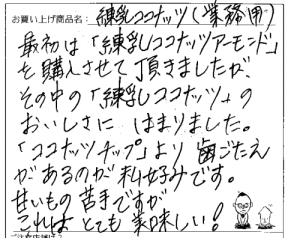 お買い上げ商品名: 練乳ココナッツ(業務用)
最初は「練乳ココナッツアーモンド」
を購入させて頂きましたが、
その中の「練乳ココナッツ」の
おいしさに はまりました。
「ココナッツチップ」より 歯ごたえ
があるのが 私好みです。
甘いもの 苦手ですが
これは とても 美味しい!